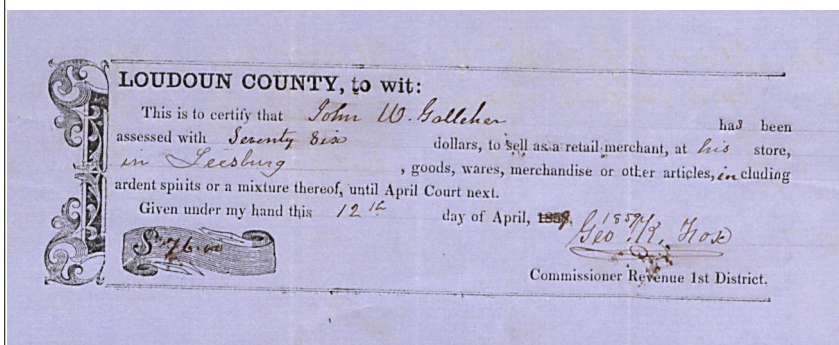 LOUDOUN COUNTY, to wit:
This is to certify that John W. Galleher has been
assessed with Seventy Six dollars, to sell as a retail merchant, at his store,
in Leesburg , goods, wares, merchandise or other articles, including
ardent spirits or a mixture thereof, until April Court next.
Given under my hand this 12th day of April, 1859
$76.00
Geo. K. Fox
Commissioner Revenue 1st District.